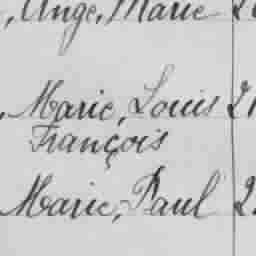 , Ange, Marie 2
, Marie, Louis 21
François
Marie, Paul 2